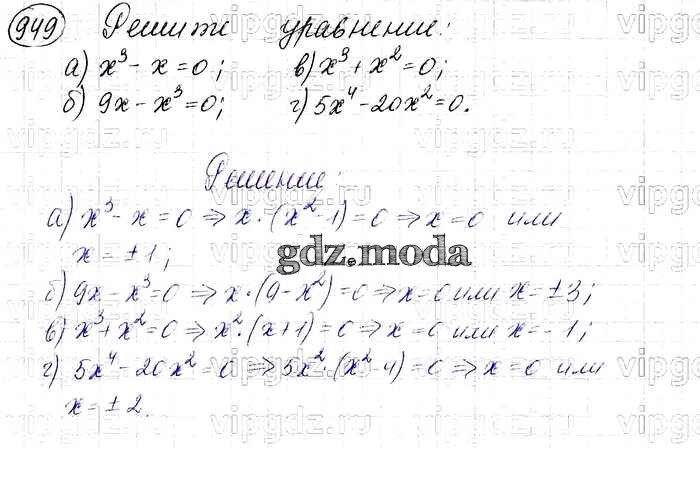 949 Решите уравнение:
а) x³ - x = 0; в) x³ + x² = 0;
б) 9x - x³ = 0; г) 5x⁴ - 20x² = 0.
Решение:
а) x³ - x = 0 ⇒ x·(x² - 1) = 0 ⇒ x = 0 или
x = ±1;
gdz.moda
б) 9x - x³ = 0 ⇒ x·(9 - x²) = 0 ⇒ x = 0 или x = ±3;
в) x³ + x² = 0 ⇒ x²·(x + 1) = 0 ⇒ x = 0 или x = -1;
г) 5x⁴ - 20x² = 0 ⇒ 5x²·(x² - 4) = 0 ⇒ x = 0 или
x = ±2.
vipgdz.ru